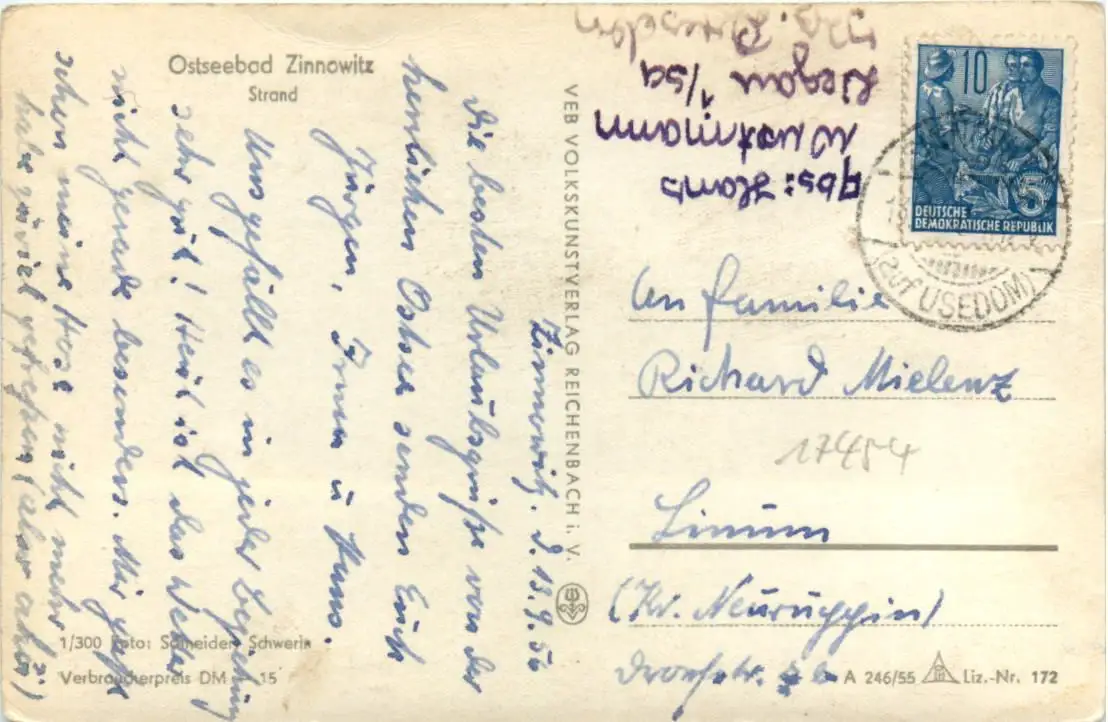 Ostseebad Zinnowitz
Strand
Zinnowitz, d. 13.9.56
Die besten Urlaubsgrüße von der
herrlichen Ostsee senden Euch
Jürgen, Irma u Hans.
Uns gefällt es in jeder Beziehung
sehr gut! Heut ist das Wetter
nicht gerade besonders. Mir paßt
schon meine Hose nicht mehr
habe zuviel gegessen (aber aber!)
1/300 Foto: Schneider, Schwerin
Verbraucherpreis DM 15
VEB VOLKSKUNSTVERLAG REICHENBACH i. V.
Abs: Hans
Wustmann
Liegau 1/sa
Dresden
10
5
DEUTSCHE
DEMOKRATISCHE REPUBLIK
(auf USEDOM)
An Familie
Richard Mielenz
17454
Linum
(Kr. Neuruppin)
A 246/55 Liz.-Nr. 172